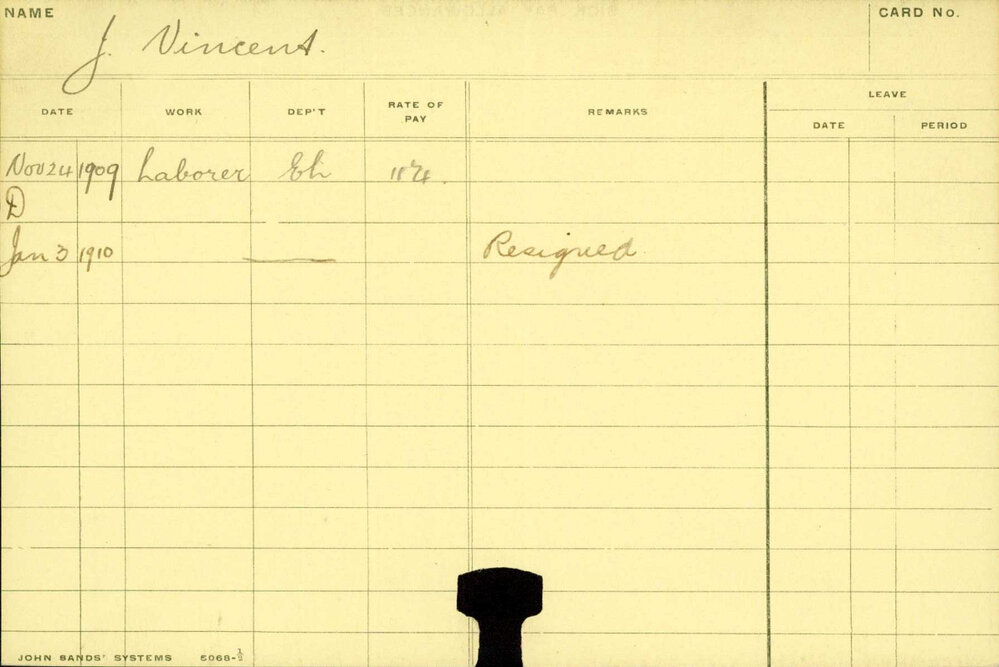 NAME
J. Vincent.
CARD No.
DATE WORK DEP'T RATE OF PAY REMARKS LEAVE
DATE PERIOD
Nov 24 1909 Laborer
D
Jan 3 1910 Resigned
JOHN SANDS' SYSTEMS 5068-½